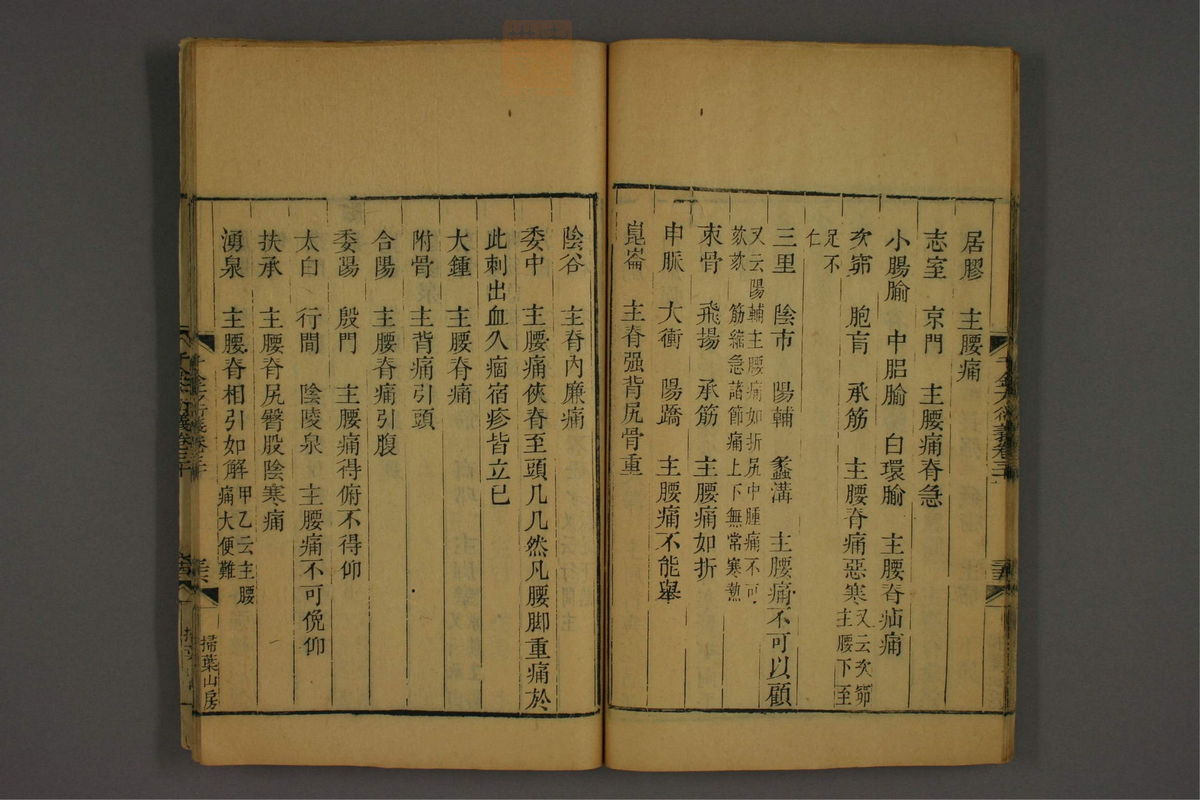 居膠　主腰痛
志室　京門　主腰痛脊急
小腸腧　中膂腧　白環腧　主腰脊疝痛
次窌　胞肓　承筋　主腰脊痛惡寒又云次窌主腰下至
足不仁
三里　陰市　陽輔　蠡溝　主腰痛不可以顧
又云陽輔主腰痛如折尻中腫痛不可欬欬筋縮急諸節痛上下無常寒熱
束骨　飛揚　承筋　主腰痛如折
申脈　大衝　陽蹻　主腰痛不能舉
崑崙　主脊强背尻骨重
陰谷　主脊內廉痛
委中　主腰痛俠脊至頭几几然凡腰脚重痛於
此刺出血久痼宿疹皆立已
大鍾　主腰脊痛
附骨　主背痛引頭
合陽　主腰脊痛引腹
委陽　殷門　主腰痛得俯不得仰
太白　行間　陰陵泉　主腰痛不可俛仰
扶承　主腰脊尻臀股陰寒痛
湧泉　主腰脊相引如解甲乙云主腰痛大便難
千金方衍義卷三十
掃葉山房